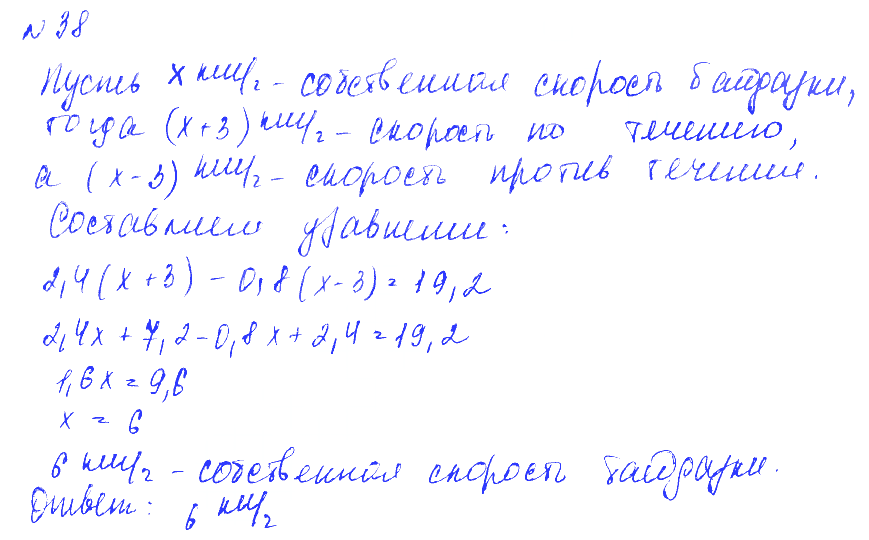 № 38
Пусть x км/ч - собственная скорость байдарки,
тогда (x+3) км/ч - скорость по течению,
а (x-3) км/ч - скорость против течения.
Составляем уравнение:
2,4(x+3) - 0,8(x-3) = 19,2
2,4x + 7,2 - 0,8x + 2,4 = 19,2
1,6x = 9,6
x = 6
6 км/ч - собственная скорость байдарки.
Ответ: 6 км/ч